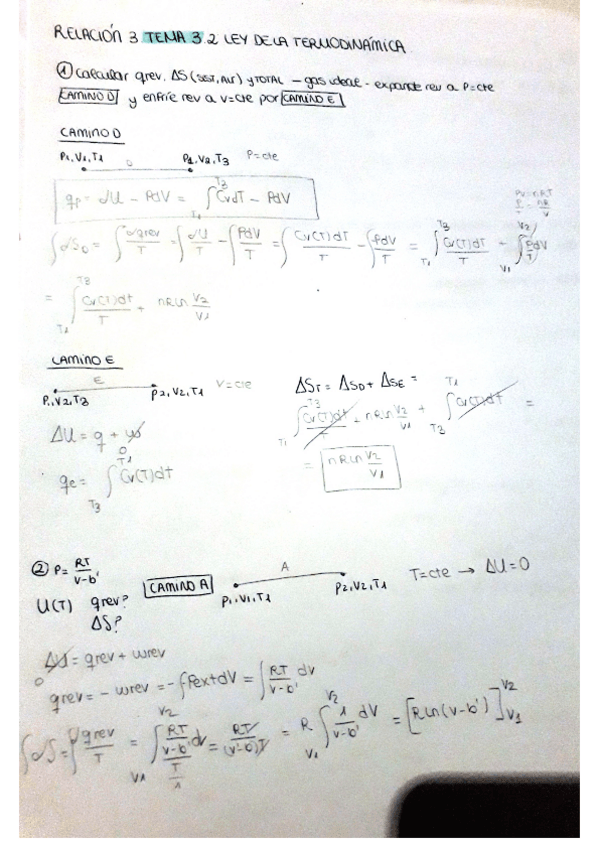 RELACIÓN 3 TEMA 3. 2 LEY DE LA TERMODINÁMICA
① Calcular qrev, ΔS (SIST, ALR) y TOTAL - gas ideal - expande rev a P=cte
CAMINO D y enfríe rev a V=cte por CAMINO E
CAMINO D
P1, V1, T1 D P1, V2, T3 P=cte
qp = dU - PdV = ∫T1^T3 CvdT - PdV
PV = nRT
P/T = nR/V
∫dSD = ∫dqrev/T = ∫dU/T - ∫PdV/T = ∫Cv(T)dT/T - ∫PdV/T = ∫T1^T3 Cv(T)dT/T - ∫V1^V2 PdV/T
= ∫T1^T3 Cv(T)dt/T + nRLn V2/V1
CAMINO E
E
P1, V2, T3 P2, V2, T1 V=cte
ΔU = q + w 0
qe = ∫T3^T1 Cv(T)dT
ΔST = ΔSD + ΔSE =
∫T1^T3 Cv(T)dt/T + nRLn V2/V1 + ∫T3^T1 Cv(T)dt =
= nRLn V2/V1
② P = RT/V-b'
U(T) qrev?
ΔS?
CAMINO A
A
P1, V1, T1 P2, V2, T1 T=cte → ΔU=0
ΔU = qrev + wrev
0
qrev = - wrev = -∫PextdV = ∫RT/V-b' dV
∫dS = ∫qrev/T = ∫V1^V2 RT/V-b' dV/T/1 = RT/(V-b')T = R ∫V1^V2 1/V-b' dV = [RLn(V-b')]V1^V2